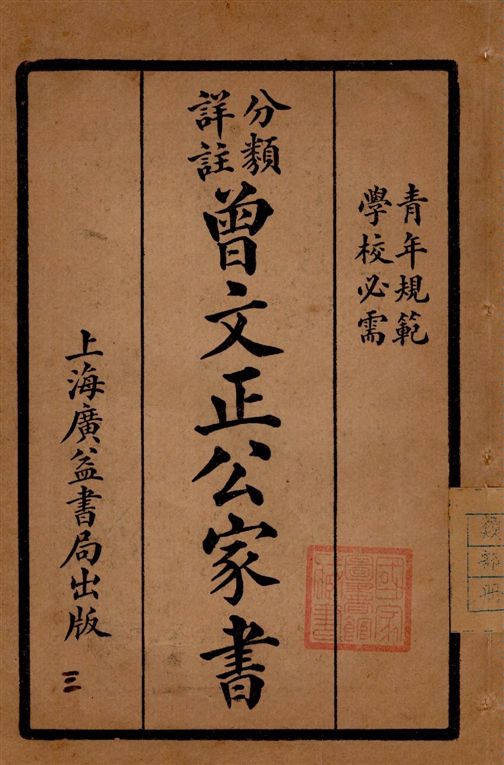 青年規範
學校必需
分類
詳註
曾文正公家書
上海廣益書局出版
三
國家
圖書館
藏書